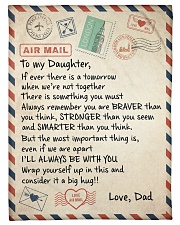 AIR MAIL
To my Daughter,
If ever there is a tomorrow
when we're not together
There is something you must
Always remember you are BRAVER than
you think, STRONGER than you seem
and SMARTER than you think.
But the most important thing is,
even if we are apart
I'LL ALWAYS BE WITH YOU
Wrap yourself up in this and
consider it a big hug!!
Love, Dad